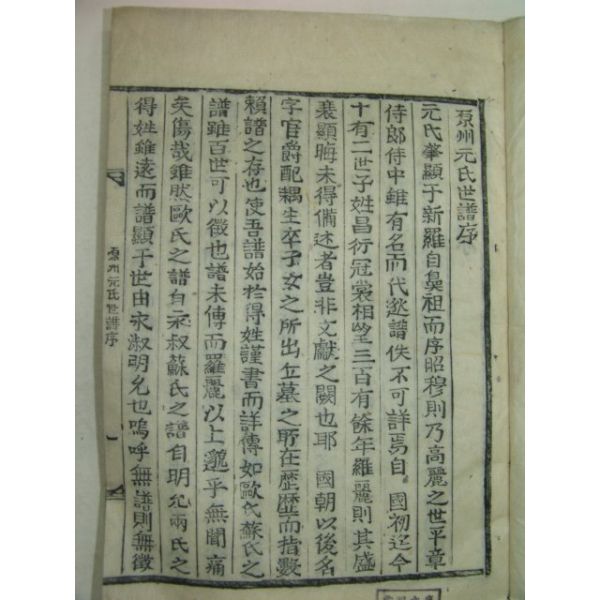 原州元氏世譜序
元氏肇顯于新羅自鼻祖而序昭穆則乃高麗之世平章
侍郎侍中雖有名而代逖譜佚不可詳焉自 國初迄今
十有二世子姓昌衍冠裳相望三百有餘年羅麗則其盛
衰顯晦未得備述者豈非文獻之闕也耶 國朝以後名
字官爵配耦生卒子女之所出丘墓之所在歷歷而指數
賴譜之存也使吾譜始於得姓謹書而詳傳如歐氏蘇氏之
譜雖百世可以徵也譜未傳而羅麗以上邈乎無聞痛
矣傷哉雖然歐氏之譜自永叔蘇氏之譜自明允兩氏之
得姓雖遠而譜顯于世由永叔明允也嗚呼無譜則無徵
原州元氏世譜序
一